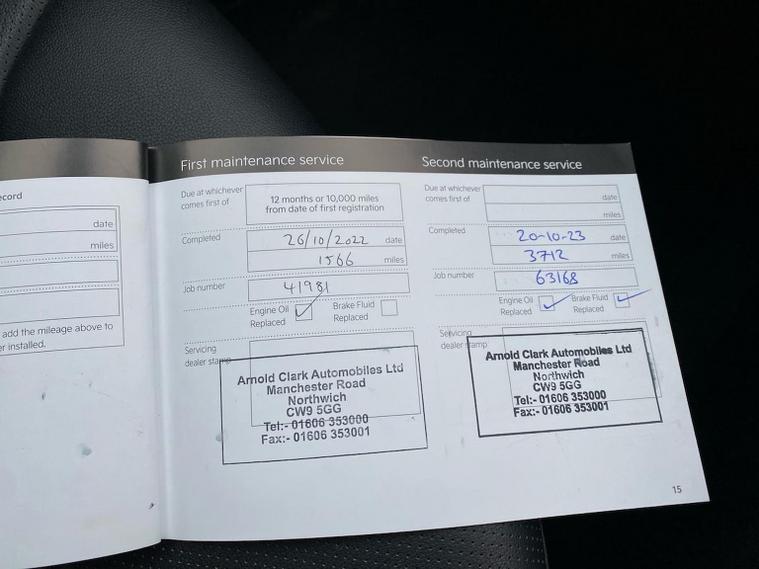 ecord
date
miles
add the mileage above to
er installed.
First maintenance service
Due at whichever
comes first of
12 months or 10,000 miles
from date of first registration
Completed
26/10/2022 date
1566 miles
Job number
41981
Engine Oil
Replaced
Brake Fluid
Replaced
Servicing
dealer stamp
Arnold Clark Automobiles Ltd
Manchester Road
Northwich
CW9 5GG
Tel:- 01606 353000
Fax:- 01606 353001
Second maintenance service
Due at whichever
comes first of
date
miles
Completed
20-10-23 date
3712 miles
Job number
63168
Engine Oil
Replaced
Brake Fluid
Replaced
Servicing
dealer stamp
Arnold Clark Automobiles Ltd
Manchester Road
Northwich
CW9 5GG
Tel:- 01606 353000
Fax:- 01606 353001
15